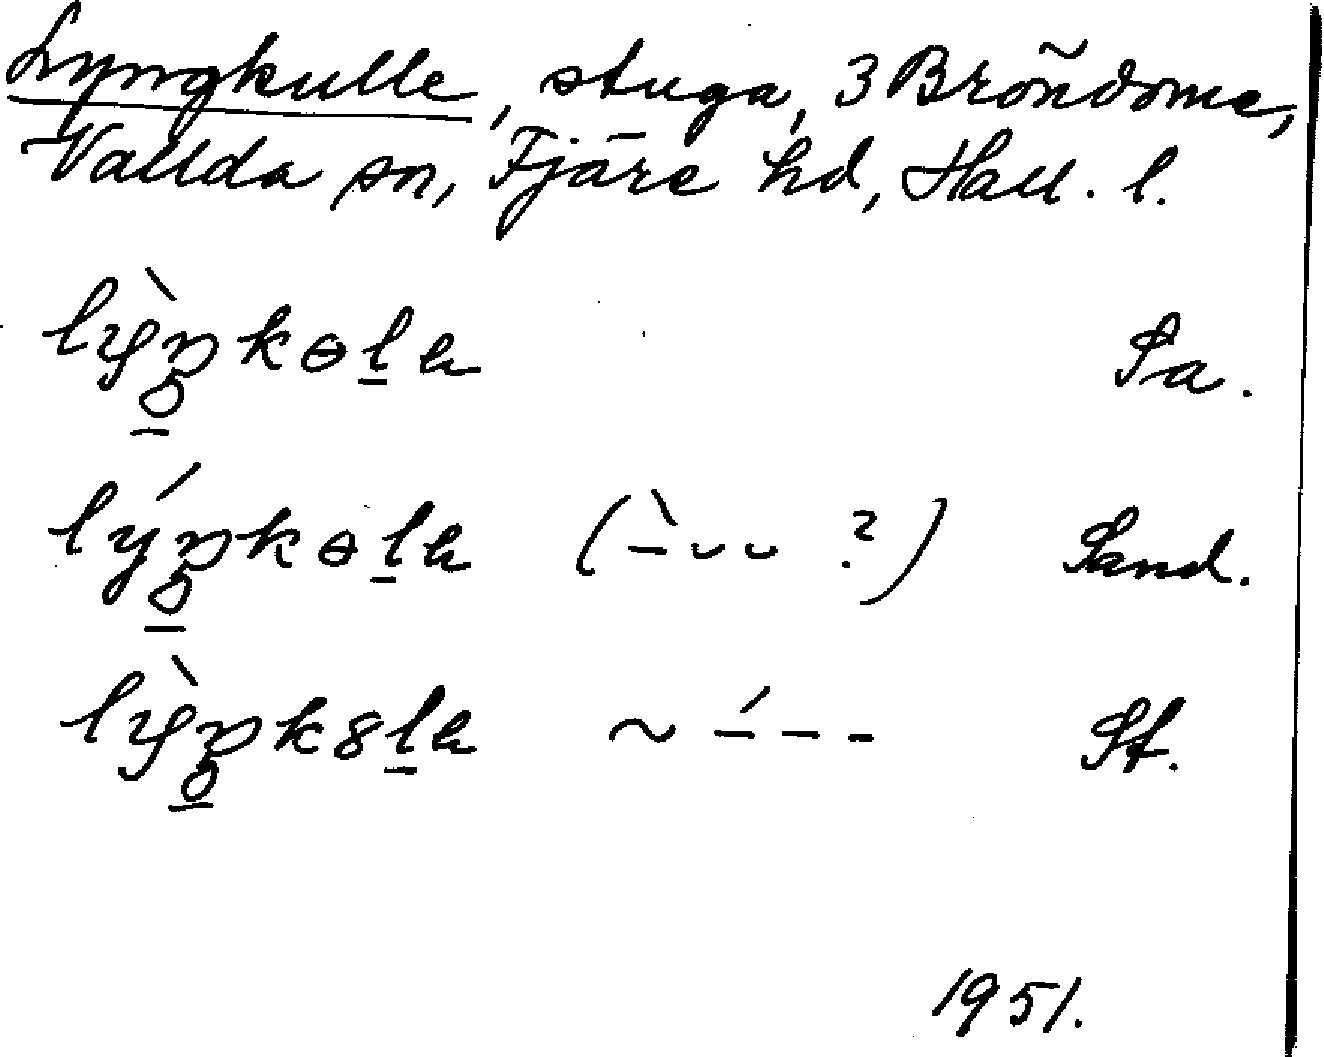 Lyngkulle, stuga, 3 Bröndome,
Vallda sn, Fjäre hd, Hall. l.
lỳŋkɵl̠a Sa.
lýŋkɵl̠a (-̀ ᴗ ᴗ ?) Sand.
lỳŋk8l̠a ~ -́ - - St.
1951.